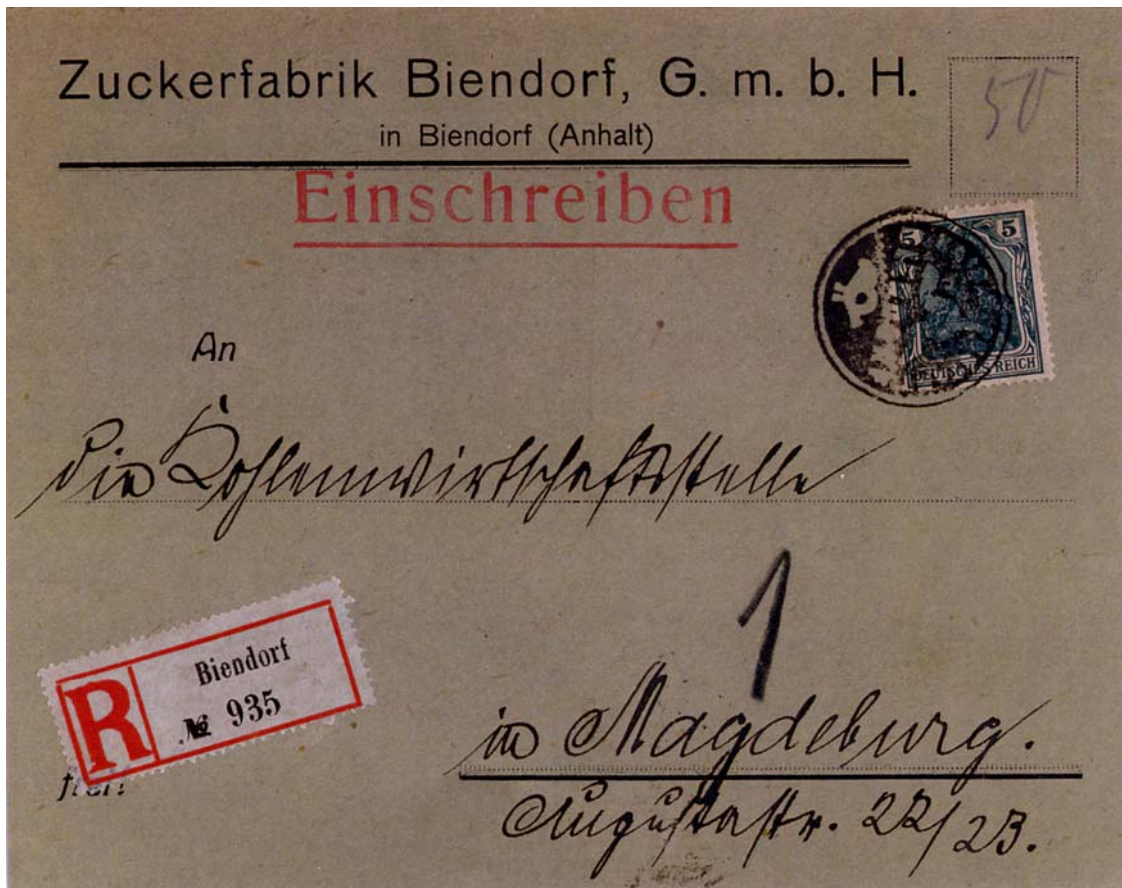 Zuckerfabrik Biendorf, G. m. b. H.
in Biendorf (Anhalt)
50
Einschreiben
5 5
DEUTSCHES REICH
An
die Kohlenwirtschaftsstelle
1
Biendorf
R № 935
in Magdeburg.
Augustastr. 22/23.